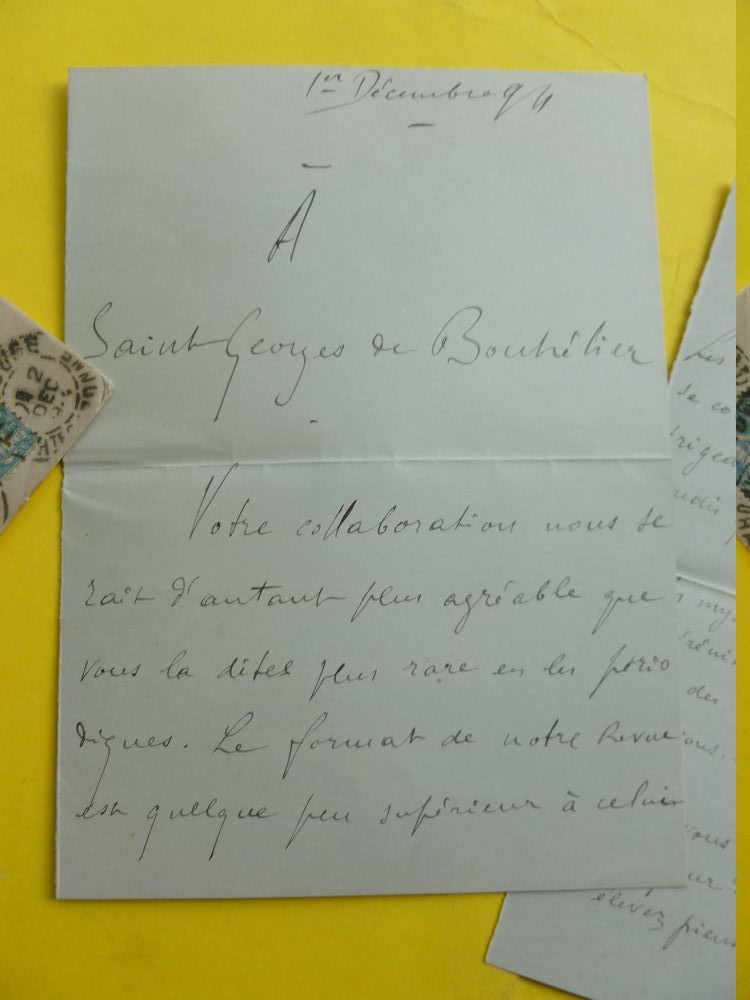 1er Décembre 94
A
Saint-Georges de Bouhélier
Votre collaboration nous se
rait d'autant plus agréable que
vous la dites plus rare en les pério
diques. Le format de notre Revue
est quelque peu supérieur à celui
2
DEC
Les
se co
des
vous
ur
élevez